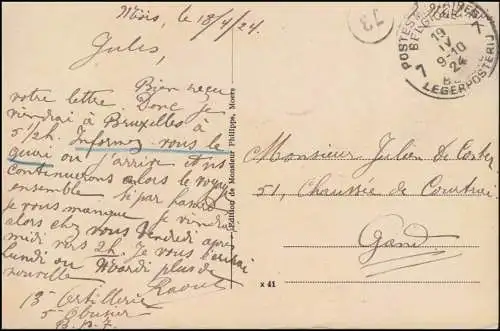 Moërs, le 18/4/24.
Jules,
Bien reçu
votre lettre. Donc je
viendrai à Bruxelles à
5/2h. Informez vous le
quai où j'arrive et ns
continuerons alors le voyage
ensemble. Si par hasard
je vous manque je viendrai
alors chez vous Vendredi après
midi vers 2h. Je vous
lundi ou Mardi plus de
nouvelle Raoul
13e Artillerie
5e Obusier
B.P.7.
Edition de Monsieur Philippe, Moers
73
POSTES MILITAIRES
BELGIQUE
19
IV
9-10
24
7 7
LEGERPOSTERIJ
Monsieur Julien De Coster
51, Chaussée de Courtrai
Gand
x 41